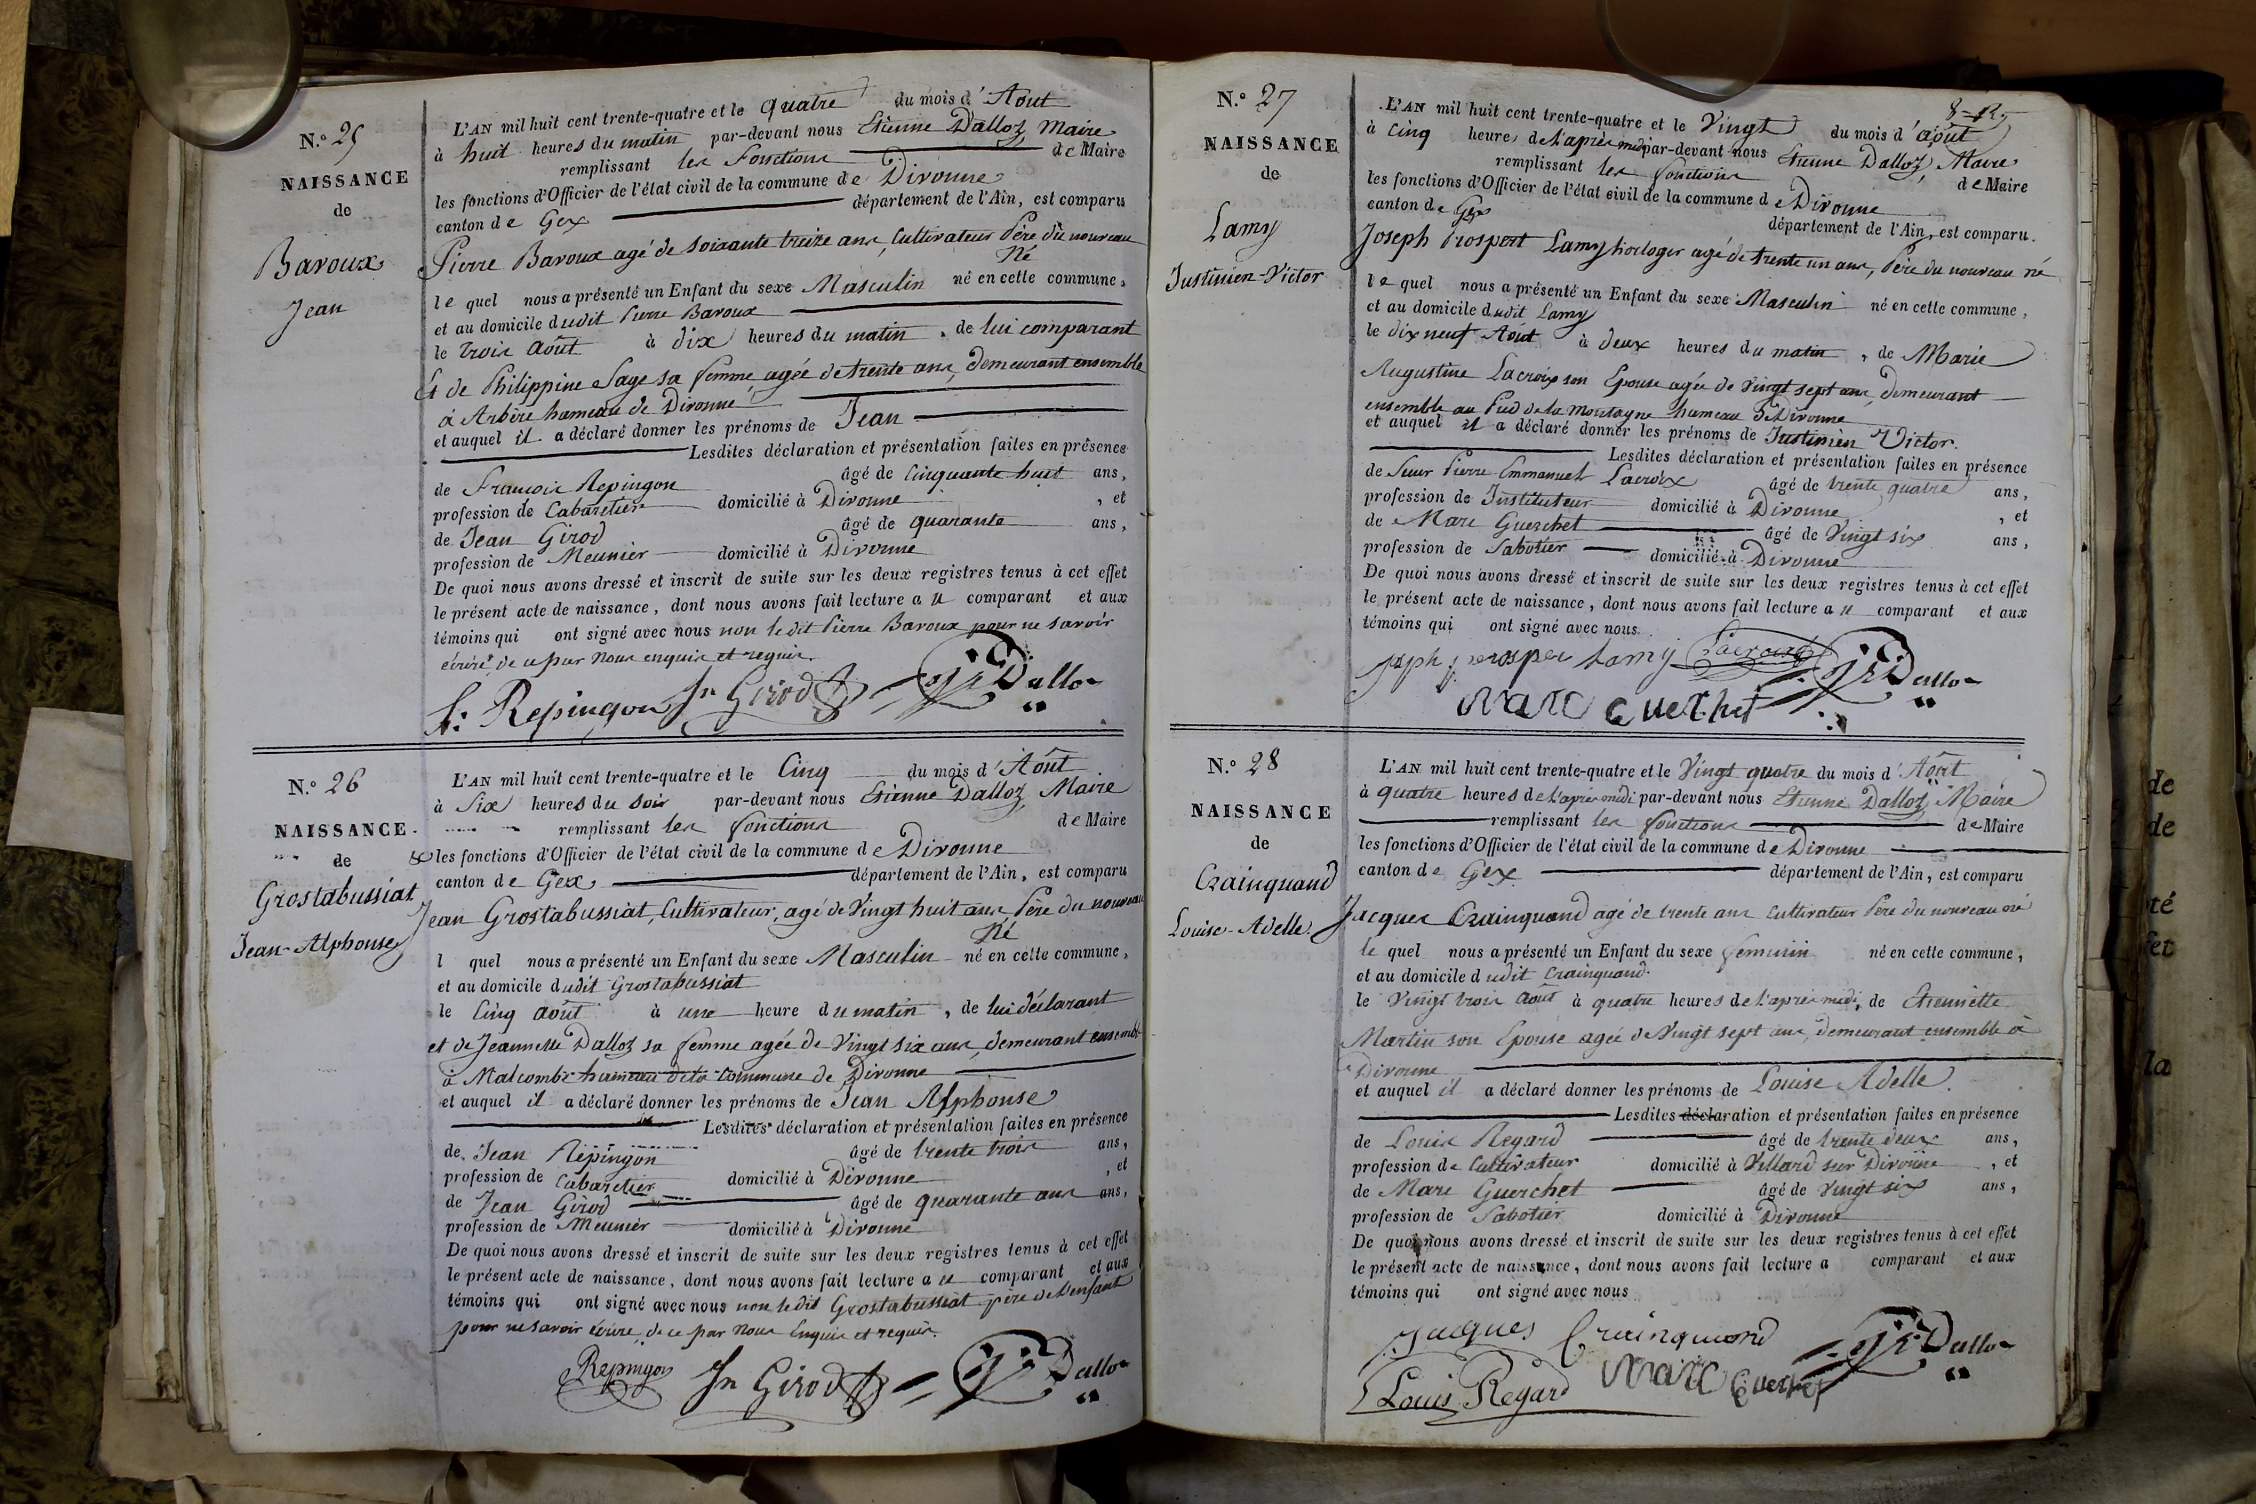 N.° 25
NAISSANCE
de
Baroux
Jean
L'AN mil huit cent trente-quatre et le quatre du mois d'Aout
à huit heures du matin par-devant nous Etienne Dalloz Maire
remplissant les fonctions de Maire
les fonctions d'Officier de l'état civil de la commune de Divonne
canton de Gex département de l'Ain, est comparu
Pierre Baroux agé de soixante treize ans, Cultivateur Père du nouveau
né
le quel nous a présenté un Enfant du sexe Masculin né en cette commune,
et au domicile dudit Pierre Baroux
le trois Août à dix heures du matin, de lui comparant
Et de Philippine Sage sa femme, agée de trente ans, demeurant ensemble
à Arbère hameau de Divonne
et auquel il a déclaré donner les prénoms de Jean
Lesdites déclaration et présentation faites en présence
de François Repingon âgé de cinquante huit ans,
profession de Cabaretier domicilié à Divonne, et
de Jean Girod âgé de quarante ans,
profession de Meunier domicilié à Divonne
De quoi nous avons dressé et inscrit de suite sur les deux registres tenus à cet effet
le présent acte de naissance, dont nous avons fait lecture au comparant et aux
témoins qui ont signé avec nous non le dit Pierre Baroux pour ne savoir
écrire de ce par nous enquis et requis.
f: Repingon Jn Girod Dalloz
N.° 26
NAISSANCE.
de
Grostabussiat
Jean-Alphonse
L'AN mil huit cent trente-quatre et le Cinq du mois d'Août
à Six heures du soir par-devant nous Etienne Dalloz Maire
remplissant les fonctions de Maire
les fonctions d'Officier de l'état civil de la commune de Divonne
canton de Gex département de l'Ain, est comparu
Jean Grostabussiat, Cultivateur, agé de Vingt huit ans, Père du nouveau
Né
l quel nous a présenté un Enfant du sexe Masculin né en cette commune,
et au domicile dudit Grostabussiat
le Cinq août à une heure du matin, de lui déclarant
et de Jeannette Dalloz sa femme agée de Vingt six ans, demeurant ensemble
à Malcombe hameau de la commune de Divonne
et auquel il a déclaré donner les prénoms de Jean Alphonse
Lesdites déclaration et présentation faites en présence
de Jean Répingon âgé de trente trois ans,
profession de Cabaretier domicilié à Divonne, et
de Jean Girod âgé de quarante ans ans,
profession de Meunier domicilié à Divonne
De quoi nous avons dressé et inscrit de suite sur les deux registres tenus à cet effet
le présent acte de naissance, dont nous avons fait lecture au comparant et aux
témoins qui ont signé avec nous non le dit Grostabussiat père de l'enfant
pour ne savoir écrire de ce par nous Enquis et requis.
Repingon Jn Girod Dalloz
N.° 27
NAISSANCE
de
Lamy
Justinien-Victor
L'AN mil huit cent trente-quatre et le Vingt du mois d'août
à Cinq heures de l'après midi par-devant nous Etienne Dalloz, Maire
remplissant les fonctions de Maire
les fonctions d'Officier de l'état civil de la commune de Divonne
canton de Gex département de l'Ain, est comparu.
Joseph Prospert Lamy horloger agé de trente un ans, Père du nouveau né
le quel nous a présenté un Enfant du sexe Masculin né en cette commune,
et au domicile dudit Lamy
le dix neuf Août à deux heures du matin, de Marie
Augustine Lacroix son Epouse agée de Vingt sept ans, demeurant
ensemble au Pied de la montagne hameau de Divonne
et auquel il a déclaré donner les prénoms de Justinien Victor.
Lesdites déclaration et présentation faites en présence
de Sieur Pierre Emmanuel Lacroix âgé de trente quatre ans,
profession de Instituteur domicilié à Divonne, et
de Marc Guerchet âgé de Vingt six ans,
profession de Sabotier domicilié à Divonne
De quoi nous avons dressé et inscrit de suite sur les deux registres tenus à cet effet
le présent acte de naissance, dont nous avons fait lecture au comparant et aux
témoins qui ont signé avec nous.
josph prosper Lamy Lacroix Dalloz
Marc Guerchet
N.° 28
NAISSANCE
de
Crainquand
Louise-Adelle.
L'AN mil huit cent trente-quatre et le Vingt quatre du mois d'Août
à quatre heures de l'après midi par-devant nous Etienne Dalloz Maire
remplissant les fonctions de Maire
les fonctions d'Officier de l'état civil de la commune de Divonne
canton de Gex département de l'Ain, est comparu
Jacques Crainquand agé de trente ans cultivateur Père du nouveau né
le quel nous a présenté un Enfant du sexe féminin né en cette commune,
et au domicile dudit Crainquand.
le Vingt trois Août à quatre heures de l'après midi, de Etiennette
Martin son Epouse agée de Vingt sept ans, demeurant ensemble à
Divonne
et auquel il a déclaré donner les prénoms de Louise Adelle.
Lesdites déclaration et présentation faites en présence
de Louis Regard âgé de trente deux ans,
profession de Cultivateur domicilié à Villard sur Divonne, et
de Marc Guerchet âgé de Vingt six ans,
profession de Sabotier domicilié à Divonne
De quoi nous avons dressé et inscrit de suite sur les deux registres tenus à cet effet
le présent acte de naissance, dont nous avons fait lecture a comparant et aux
témoins qui ont signé avec nous
Jacques Crainquand Dalloz
Louis Regard Marc Guerchet
de
de
la